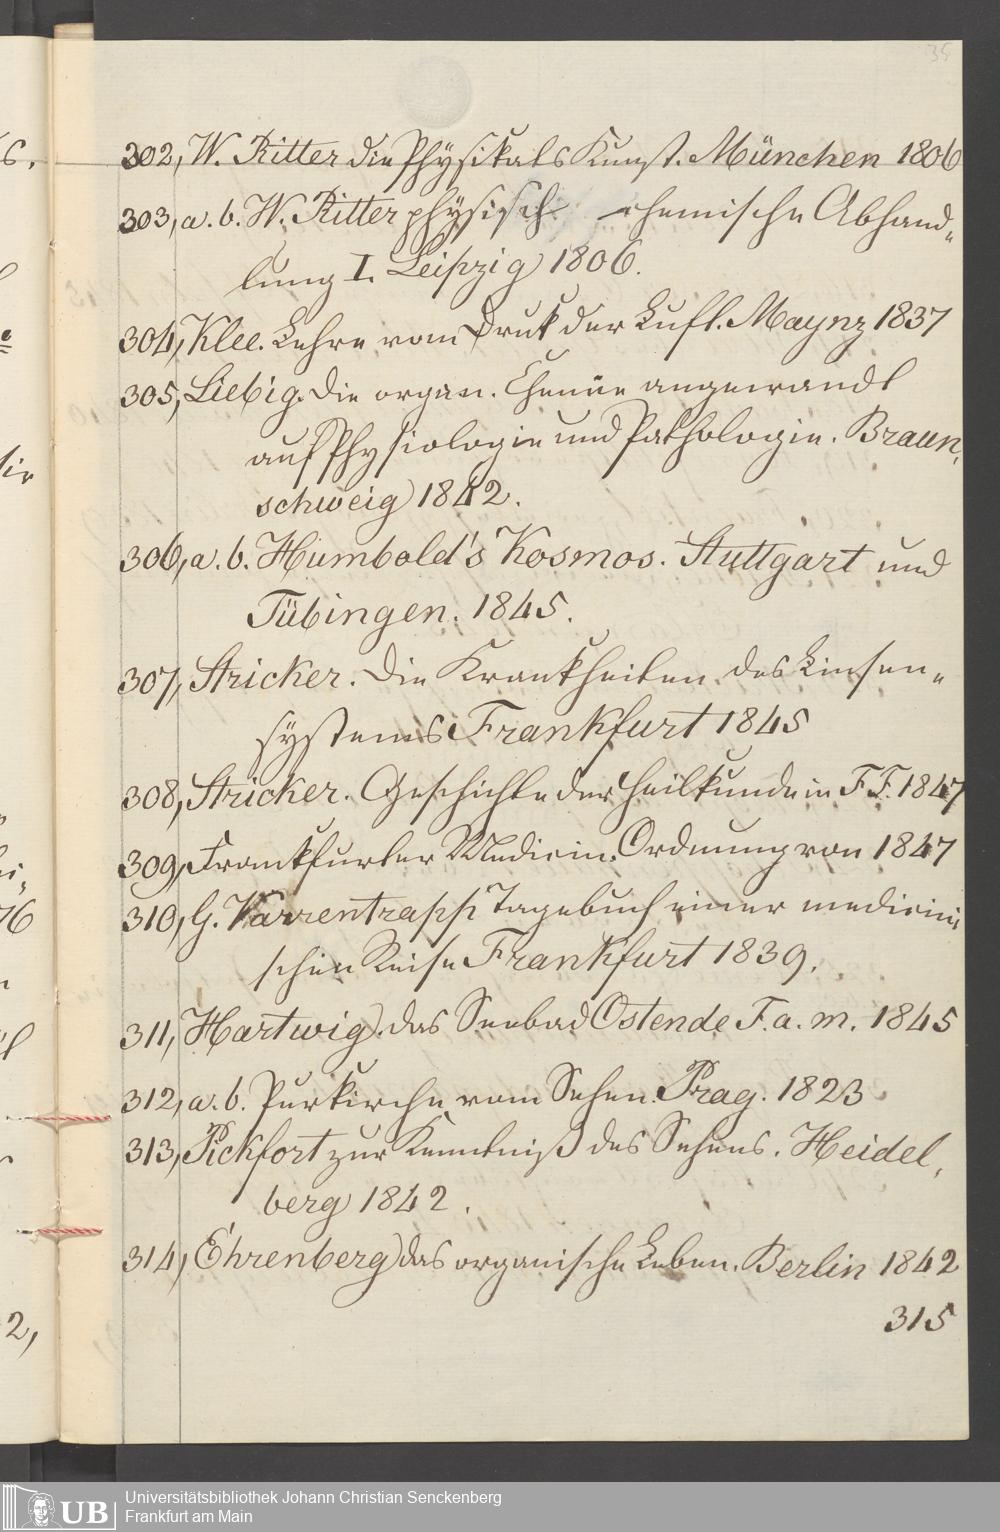 35
302, W. Ritter die Physik als Kunst. München 1806
303, a. b. W. Ritter physisch chemische Abhand„
lung I. Leipzig 1806.
304, Klee. Lehre vom Druk der Luft. Maynz 1837
305, Liebig. Die organ. Chemie angewandt
auf Physiologie und Pathologie. Braun,
schweig 1842.
306, a. b. Humbold's Kosmos. Stuttgart und
Tübingen. 1845.
307, Stricker. Die Krankheiten des Linsen„
systems Frankfurt 1845
308, Stricker. Geschichte der Heilkunde in F.F. 1847
309, Frankfurter Medicin. Ordnung von 1847
310, G. Varrentrapp Tagebuch einer medicini„
schen Reise Frankfurt 1839.
311, Hartwig. das Seebad Ostende F. a. m. 1845
312, a. b. Purkirche vom Sehen. Prag. 1823
313, Pickfort zur Kenntniß des Sehens. Heidel,
berg 1842.
314, Ehrenberg das organische Leben. Berlin 1842
315
UB
Universitätsbibliothek Johann Christian Senckenberg
Frankfurt am Main